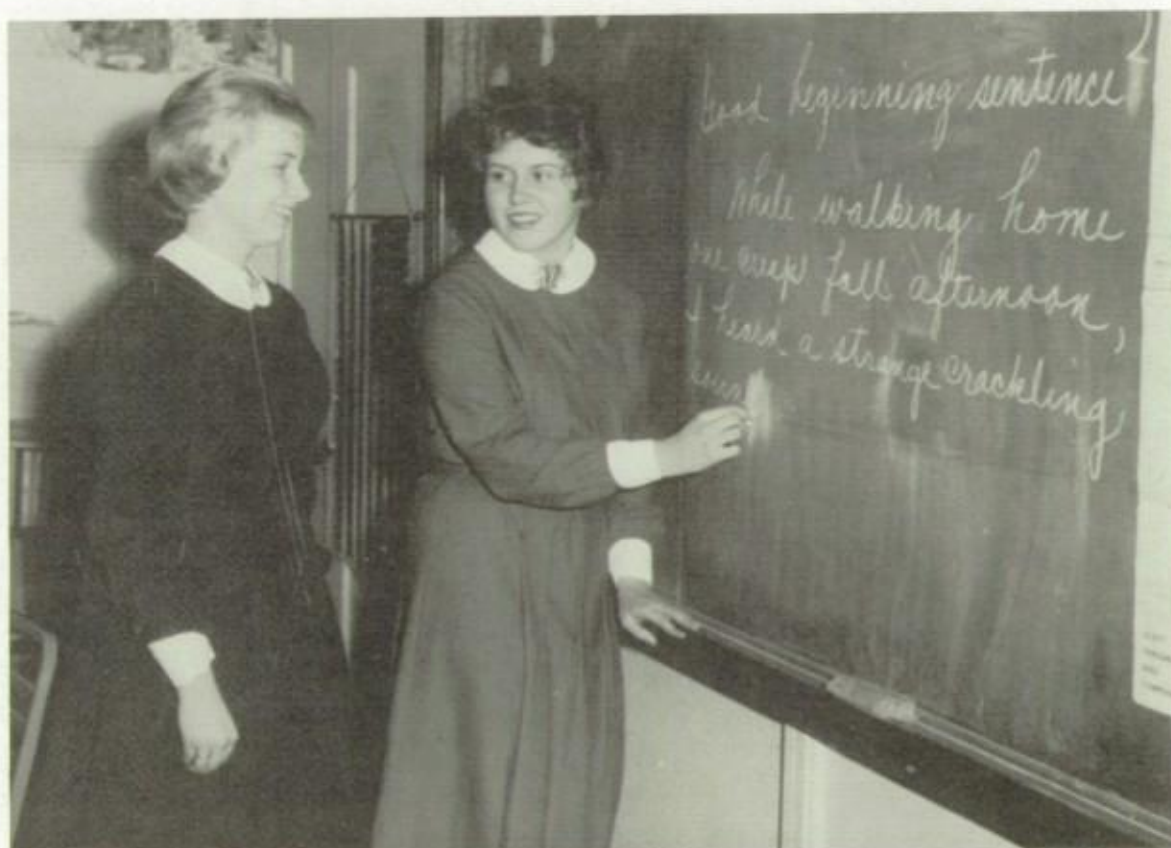 Good beginning sentence
While walking home
one crisp fall afternoon,
I heard a strange crackling